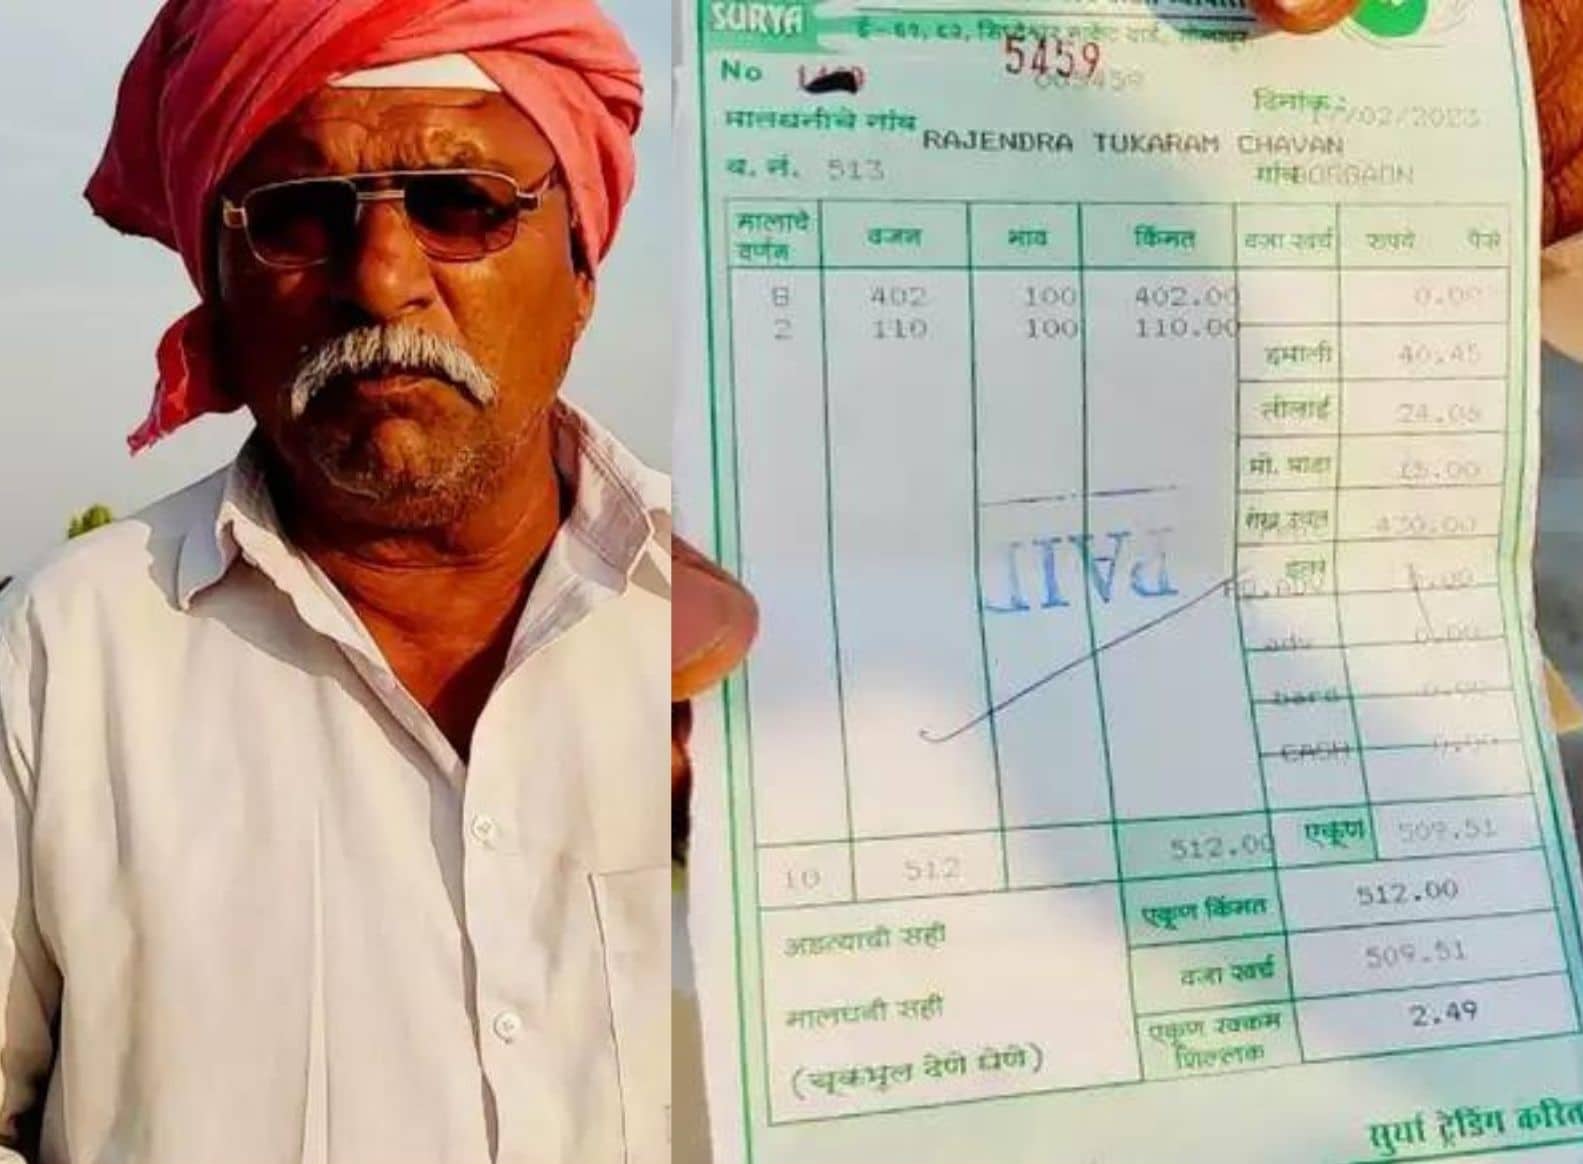 SURYA
ई-६१, ६२, सिध्देश्वर मार्केट यार्ड, सोलापूर.
5459
No
दिनांक : /02/2023
मालधनीचे नांव RAJENDRA TUKARAM CHAVAN
व. नं. 513 गांव BORGAON
मालाचे वर्णन वजन भाव किंमत वजा खर्च रुपये पैसे
8 402 100 402.00 0.00
2 110 100 110.00
हमाली 40.45
तोलाई 24.06
मो. भाडा 15.00
रोख उचल 430.00
इतर 0.00
adv 0.00
bard 0.00
CASH 0.00
PAID
10 512 512.00 एकूण 509.51
एकूण किंमत 512.00
अडत्याची सही
वजा खर्च 509.51
मालधनी सही
एकूण रक्कम शिल्लक 2.49
(चूकभूल देणे घेणे)
सुर्या ट्रेडिंग करित